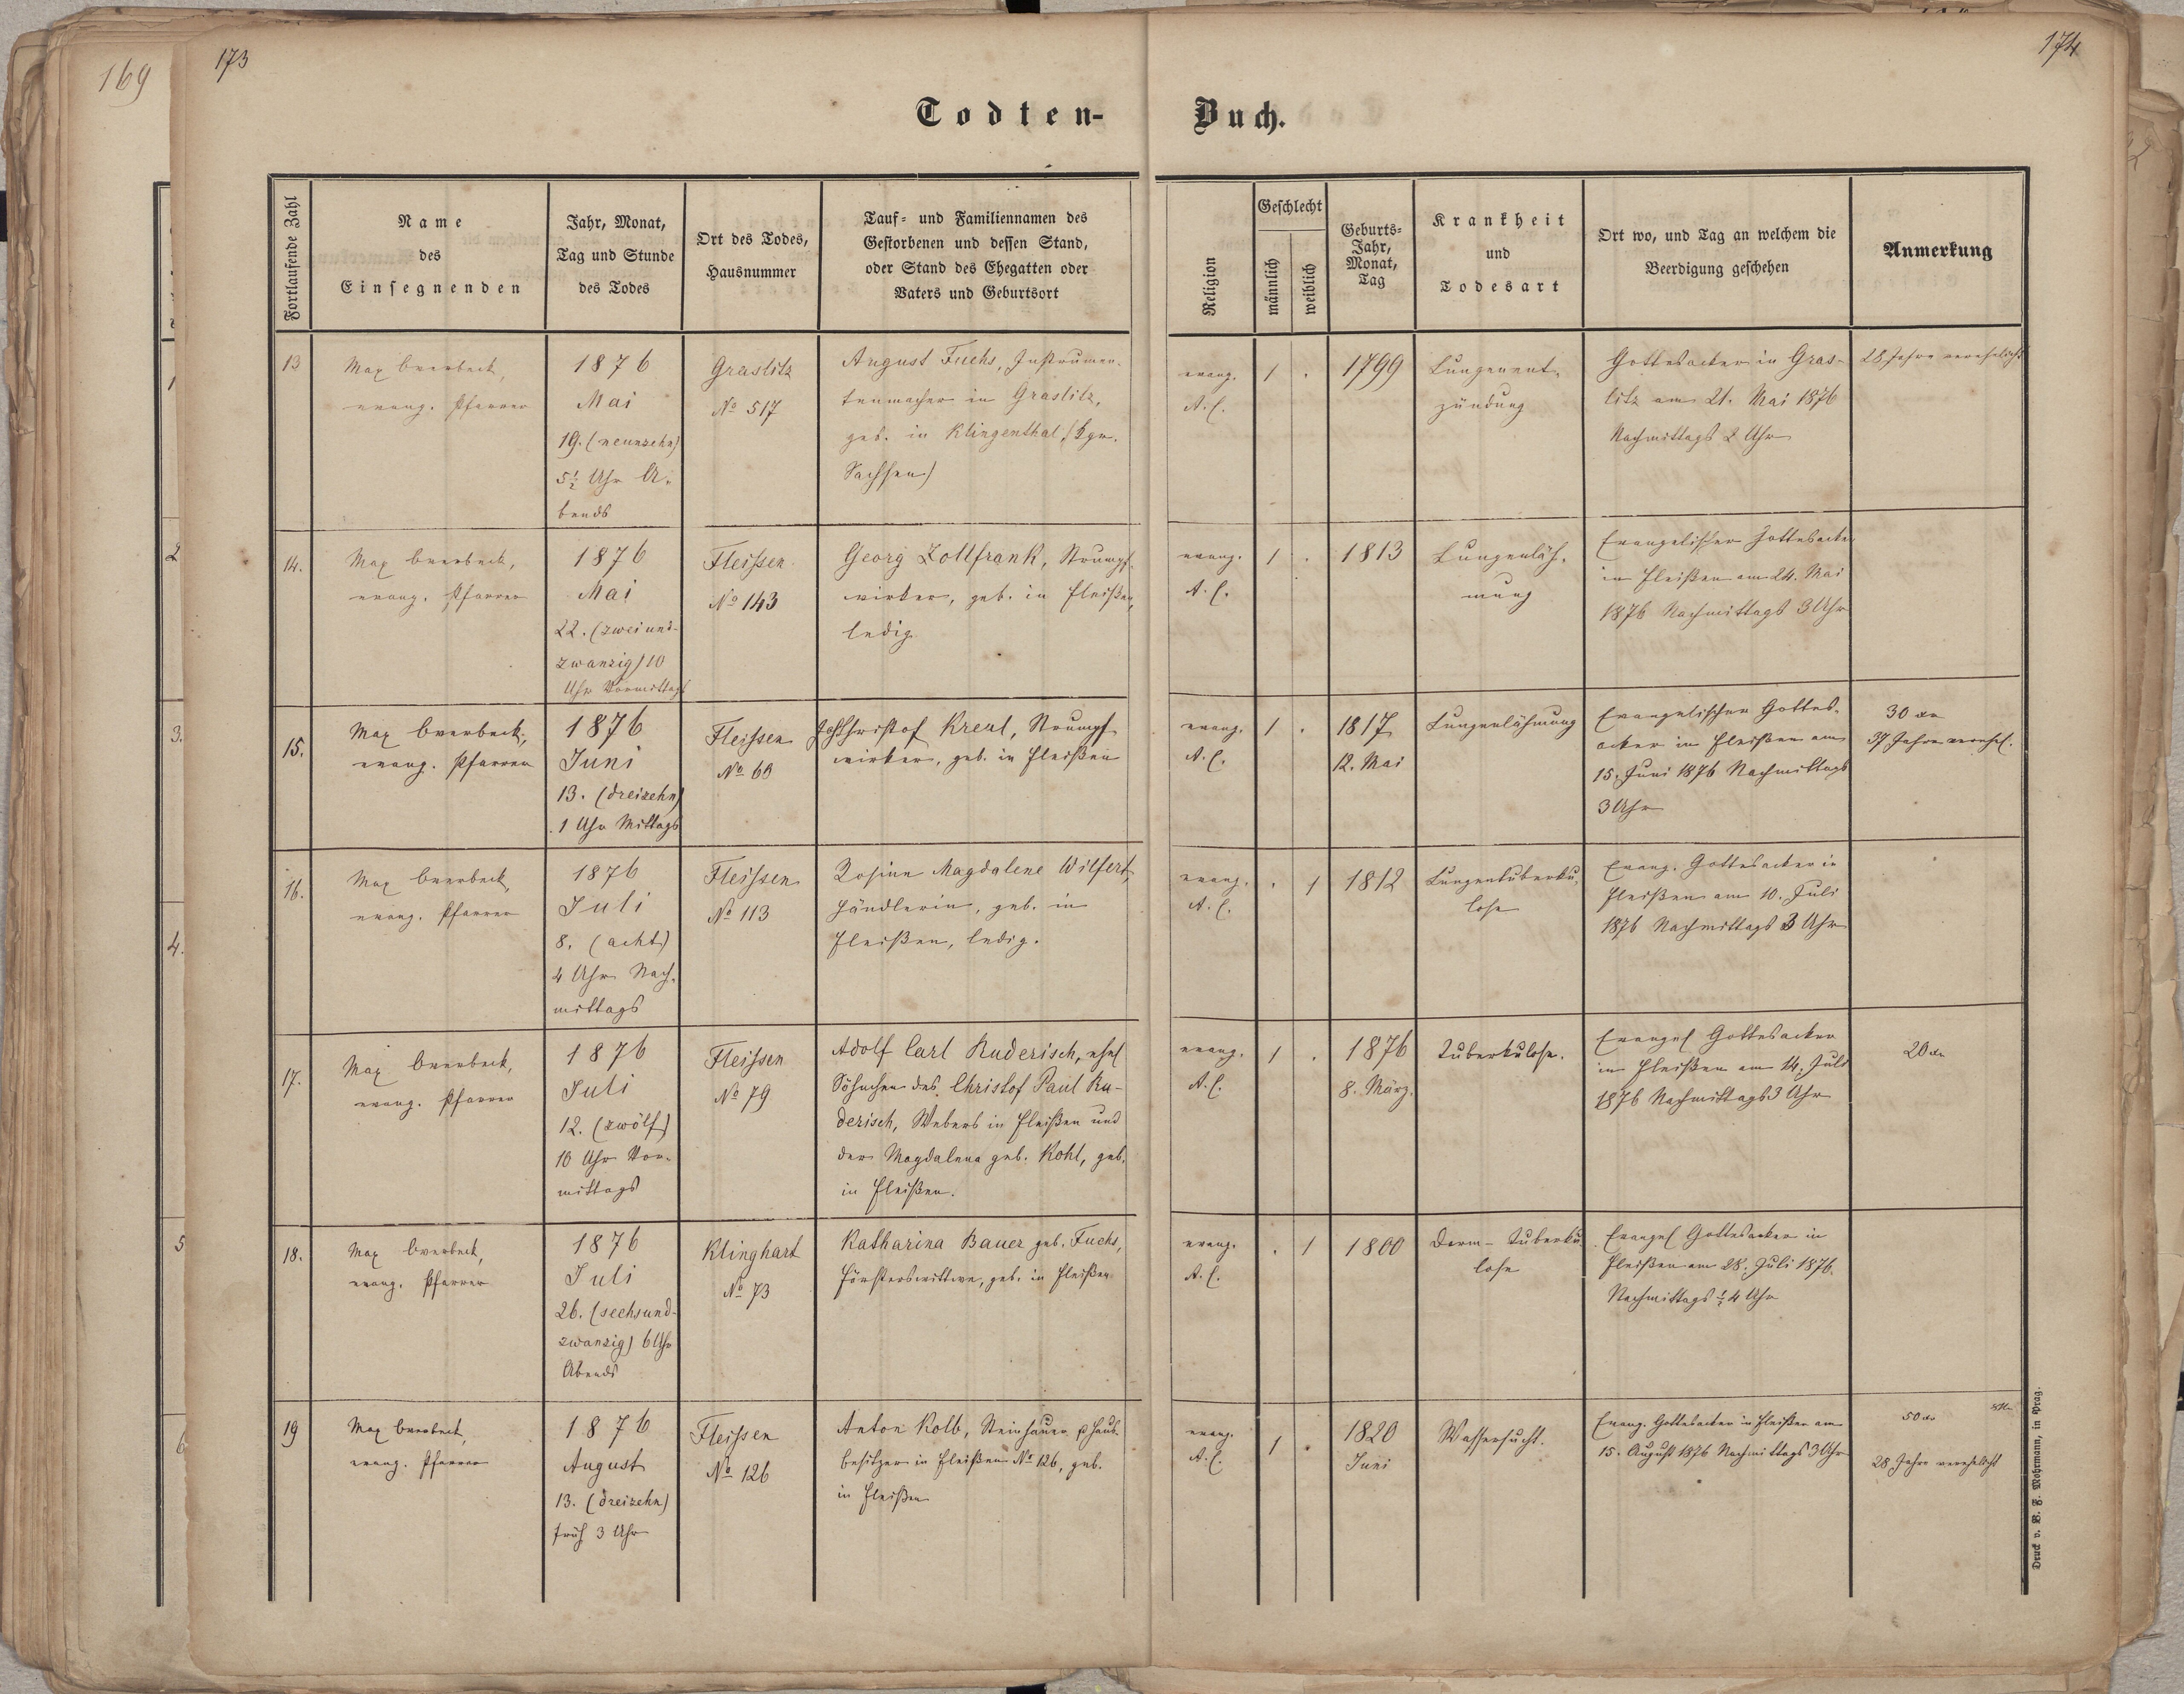 169
173
174
Todten-
Buch.
Fortlaufende Zahl
Name
des
Einsegnenden
Jahr, Monat,
Tag und Stunde
des Todes
Ort des Todes,
Hausnummer
Tauf- und Familiennamen des
Gestorbenen und dessen Stand,
oder Stand des Ehegatten oder
Vaters und Geburtsort
Religion
Geschlecht
männlich
weiblich
Geburts-
Jahr,
Monat,
Tag
Krankheit
und
Todesart
Ort wo, und Tag an welchem die
Beerdigung geschehen
Anmerkung
13
Max Overbeck,
evang. Pfarrer
1876
Mai
19. (neunzehn)
5½ Uhr A-
bends
Graslitz
No 517
August Fuchs, Instrumen-
tenmacher in Graslitz,
geb. in Klingenthal (Kgr.
Sachsen)
evang.
A. C.
1 .
1799
Lungenent-
zündung
Gottesacker in Gras-
litz am 21. Mai 1876
Nachmittags 2 Uhr
28 Jahre verehelicht
14.
Max Overbeck,
evang. Pfarrer
1876
Mai
22. (zweiund-
zwanzig) 10
Uhr Vormittags
Fleissen
No 143
Georg Zollfrank, Strumpf-
wirker, geb. in Fleißen,
ledig
evang.
A. C.
1 .
1813
Lungenläh-
mung
Evangelischer Gottesacker
in Fleißen am 24. Mai
1876 Nachmittags 3 Uhr
15.
Max Overbeck,
evang. Pfarrer
1876
Juni
13. (dreizehn)
1 Uhr Mittags
Fleissen
No 69
Joh Christof Kreul, Strumpf-
wirker, geb. in Fleißen
evang.
A. C.
1 .
1817
12. Mai
Lungenlähmung
Evangelischer Gottes-
acker in Fleißen am
15. Juni 1876 Nachmittags
3 Uhr
30 xr
37 Jahre verehel.
16.
Max Overbeck,
evang. Pfarrer
1876
Juli
8. (acht)
4 Uhr Nach-
mittags
Fleissen
No 113
Rosine Magdalene Wilfert,
Händlerin, geb. in
Fleißen, ledig.
evang.
A. C.
. 1
1812
Lungentuberku-
lose
Evang. Gottesacker in
Fleißen am 10. Juli
1876 Nachmittags 3 Uhr
17.
Max Overbeck,
evang. Pfarrer
1876
Juli
12. (zwölf)
10 Uhr Vor-
mittags
Fleissen
No 79
Adolf Carl Ruderisch, ehel
Söhnchen des Christof Paul Ru-
derisch, Webers in Fleißen und
der Magdalena geb. Kohl, geb.
in Fleißen.
evang.
A. C.
1 .
1876
8. März.
Tuberkulose.
Evangel Gottesacker
in Fleißen am 14. Juli
1876 Nachmittags 3 Uhr
20 xr
18.
Max Overbeck,
evang. Pfarrer
1876
Juli
26. (sechsund-
zwanzig) 6 Uhr
Abends
Klinghart
No 73
Katharina Bauer geb. Fuchs,
Försterswittwe, geb. in Fleißen
evang.
A. C.
. 1
1800
Darm-Tuberku-
lose
Evangel Gottesacker in
Fleißen am 28. Juli 1876.
Nachmittags ½ 4 Uhr
19
Max Overbeck,
evang. Pfarrer
1876
August
13. (dreizehn)
früh 3 Uhr
Fleissen
No 126
Anton Kolb, Steinhauer, Haus-
besitzer in Fleißen No 126, geb.
in Fleißen
evang.
A. C.
1 .
1820
Juni
Wassersucht.
Evang. Gottesacker in Fleißen am
15. August 1876 Nachmittags 3 Uhr
50 xr
28 Jahre verehelicht
Druck v. B. F. Mohrmann, in Prag.
2
3.
4.
5
6